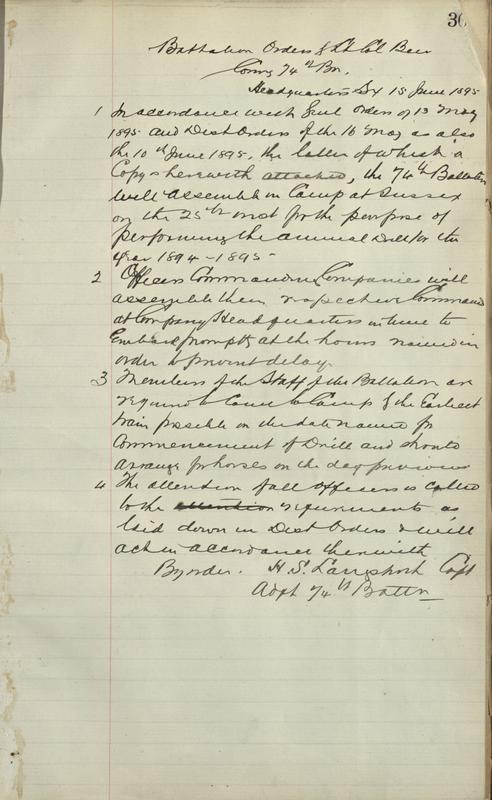 30
Battalion Orders by Lt Col Beer
Comg 74th Bn.
Headquarters Sx 15 June 1895
1 In accordance with Genl orders of 13 May
1895 and Dist Orders of the 16 May as also
the 10th June 1895, the latter of which a
Copy is herewith attached, the 74th Battalion
will assemble in Camp at Sussex
on the 25th inst for the purpose of
performing the annual Drill for the
year 1894-1895-
2 Officers Commanding Companies will
assemble their respective Command
at Company Headquarters in time to
Embark promptly at the hours named in
order to prevent delay.
3 Members of the Staff of the Battalion are
required to Come to Camp by the Earliest
train possible on the date named for
Commencement of Drill and should
arrange for horses on the day previous
4 The attention of all Officers is called
to the attention requirements as
laid down in Dist Orders & will
act in accordance therewith
By order. H. S. Capt
Adjt 74th Battn